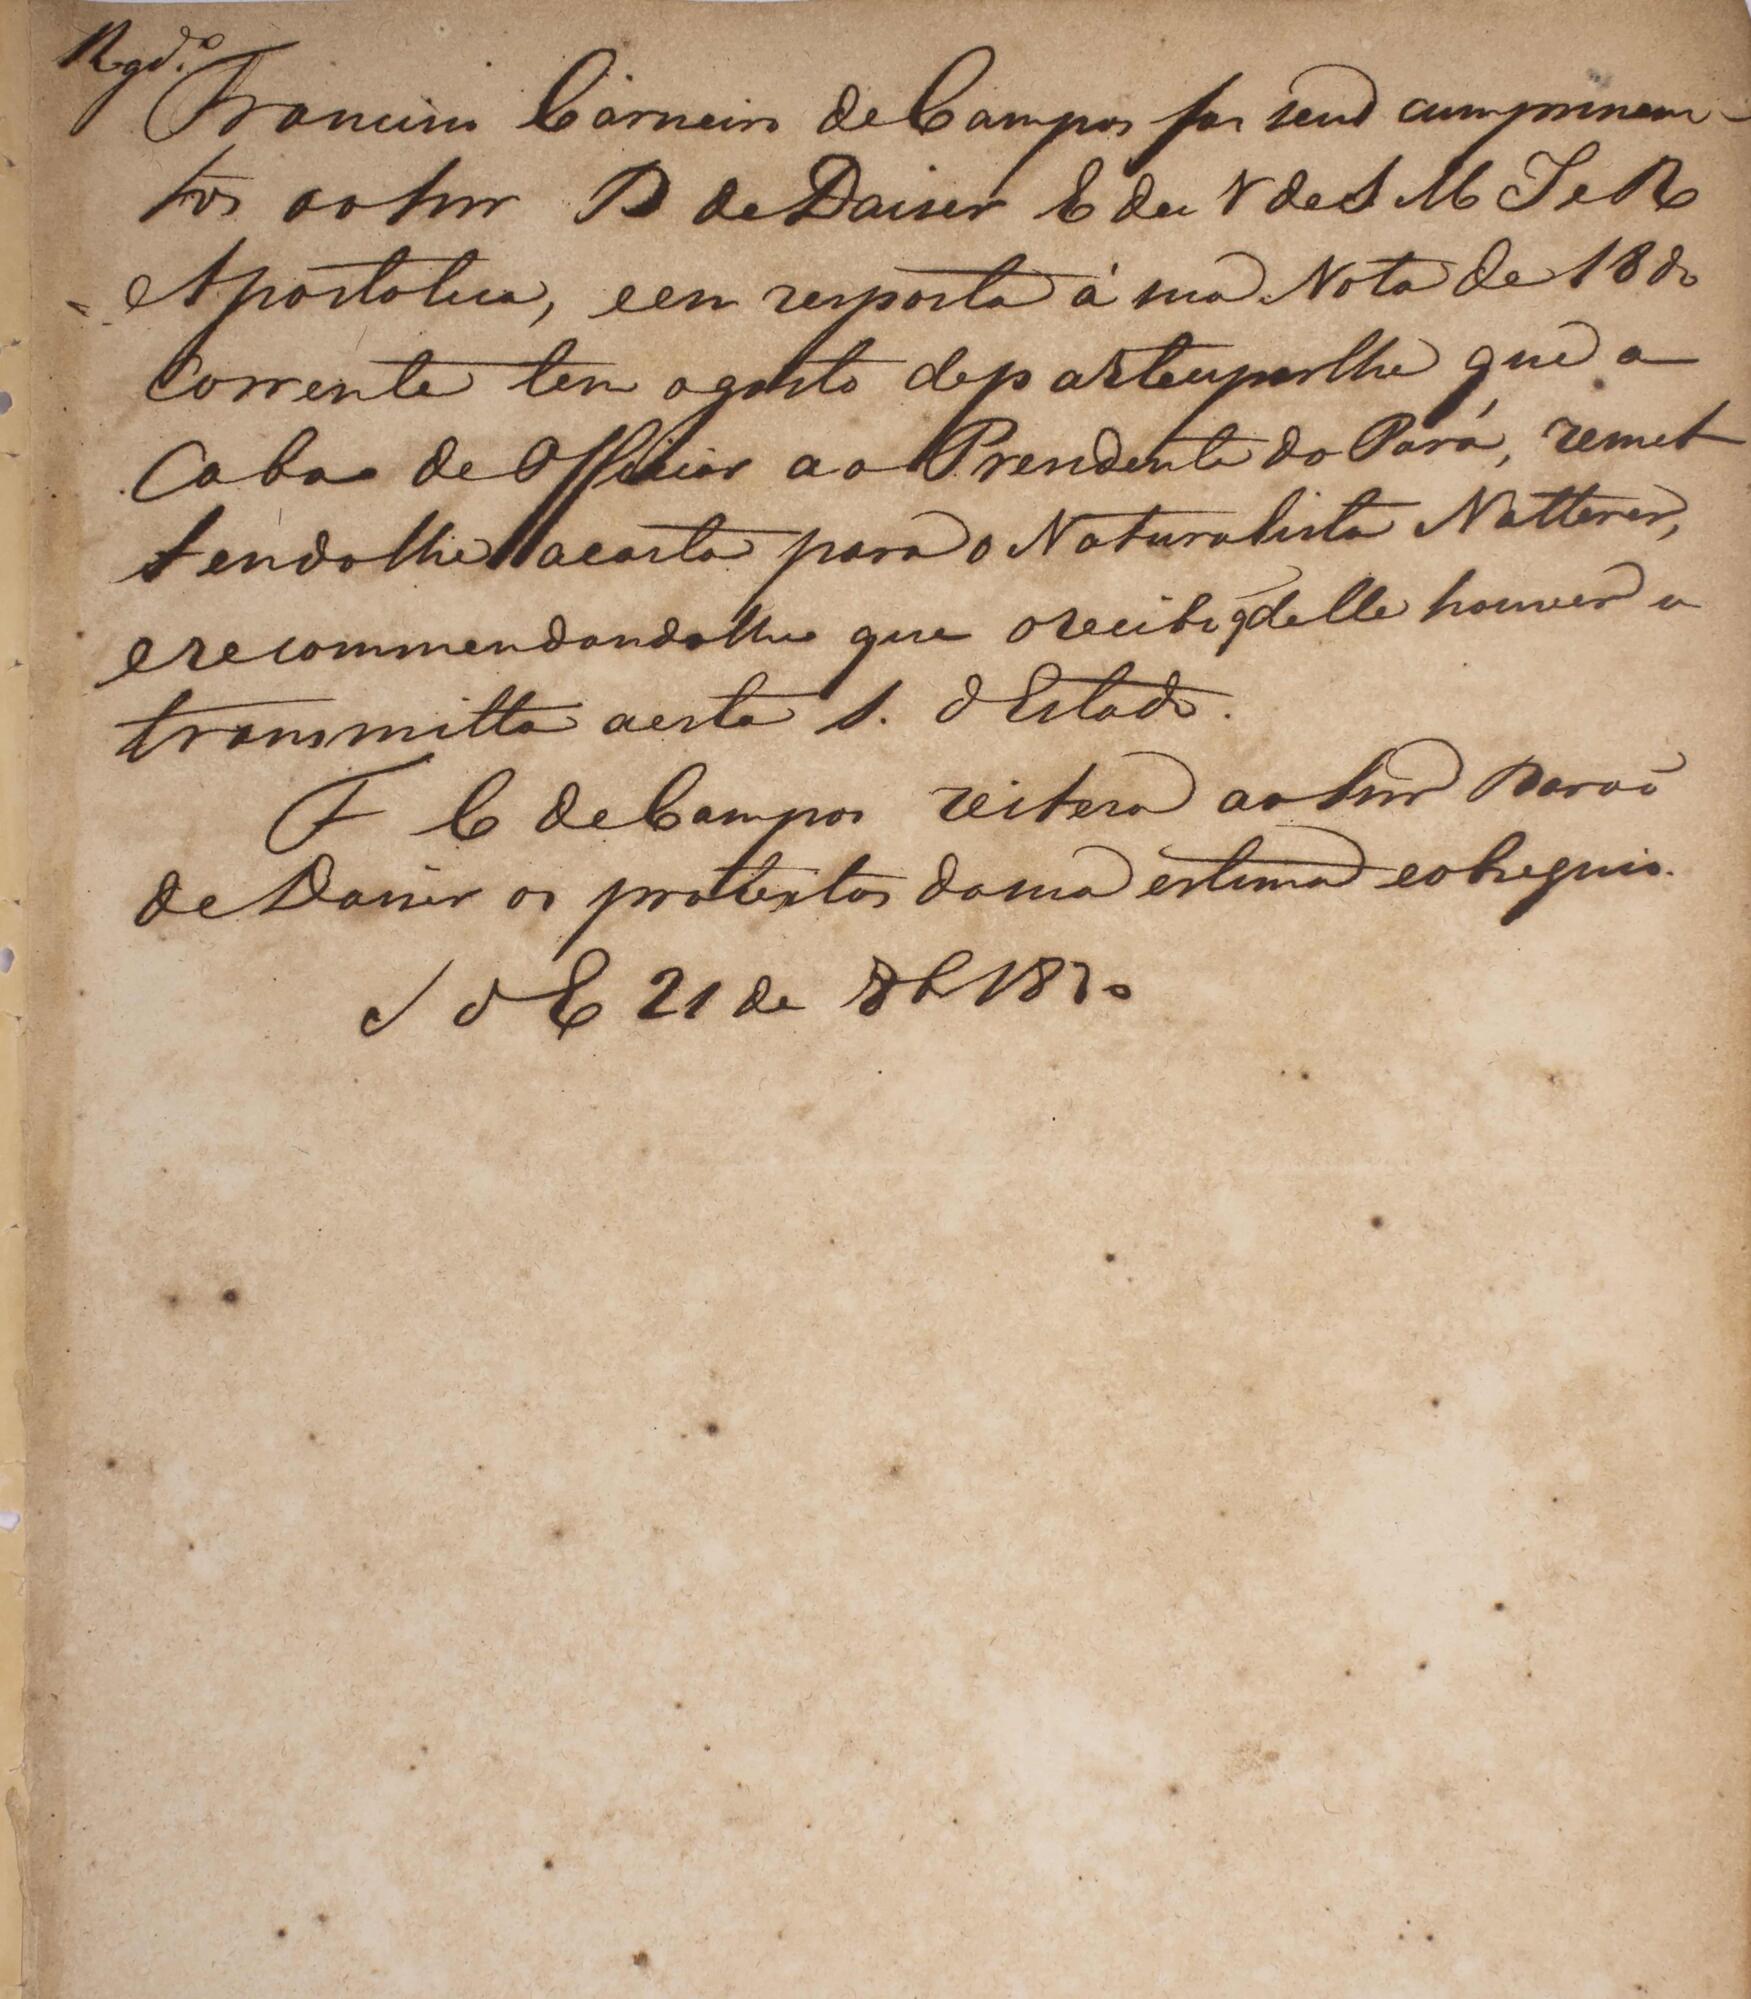 Regd.º
Francisco Carneiro de Campos faz seus cumprimen-
tos ao Snr B de Daiser E de N de S M I e R
Apostolica, e em resposta á sua Nota de 18 do
Corrente tem o gosto de participarlhe que a
Caba de Officiar ao Presidente do Pará, remet
tendolhe a carta para o Naturalista Natterer,
e recommendandolhe que o recibo q̃ delle houver o
transmitta a esta S. d'Estado.
F C de Campos reitera ao Snr Barão
de Daiser os protestos da sua estima e obsequio.
S d E 21 de 8b 1830